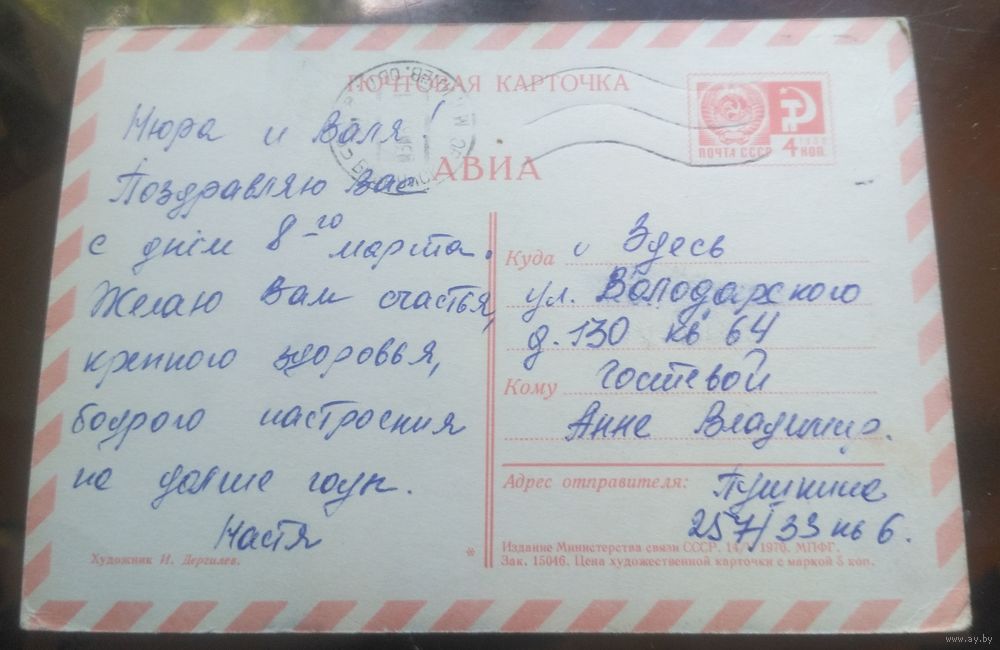 ПОЧТОВАЯ КАРТОЧКА
АВИА
ПОЧТА СССР
4 КОП.
Нюра и Валя!
Поздравляю Вас
с днём 8-го марта.
Желаю Вам счастья,
крепкого здоровья,
бодрого настроения
на долгие годы.
Настя
Художник И. Дергилев.
*
Куда Здесь
ул. Володарского
д. 130 кв 64
Кому Гостевой
Анне Владимир.
Адрес отправителя: Пушкина
257/33 кв 6.
Издание Министерства связи СССР. 1970. МПФГ.
Зак. 15046. Цена художественной карточки с маркой 5 коп.
www.ay.by